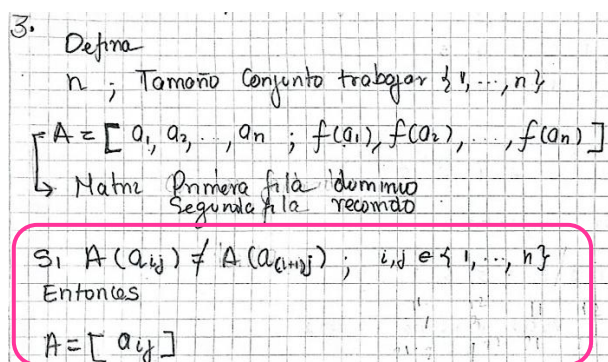 3.
Defina
n ; Tamaño Conjunto trabajar {1, ..., n}
A = [ a1, a2, ..., an ; f(a1), f(a2), ..., f(an) ]
↳ Matriz Primera fila dominio
Segunda fila recorrido
Si A(aij) ≠ A(a(i+1)j) ; i,j ∈ {1, ..., n}
Entonces
A = [ aij ]